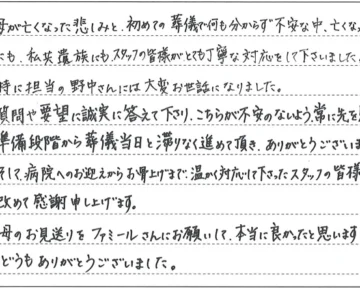 母が亡くなった悲しみと、初めての葬儀で何も分からず不安な中、亡くな
にも、私共遺族にもスタッフの皆様がとても丁寧な対応をして下さいました。
特に担当の野中さんには大変お世話になりました。
質問や要望に誠実に答えて下り、こちらが不安のないよう、常に先を
準備段階から葬儀当日と滞りなく進めて頂き、ありがとうございま
そして、病院へのお迎えからお骨上げまで、温かく対応して下さったスタッフの皆様
改めて感謝申し上げます。
母のお見送りをファミールさんにお願いして、本当に良かったと思います
どうもありがとうございました。